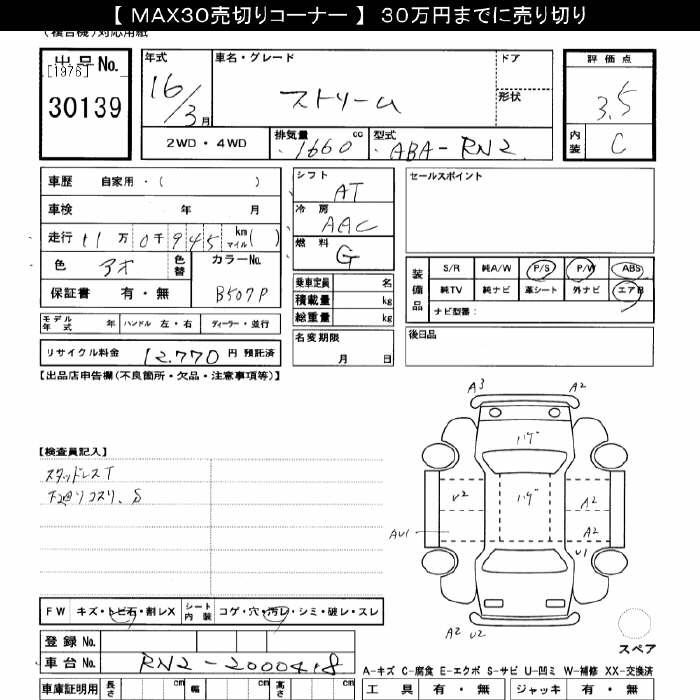 【 MAX30売切りコーナー 】 30万円までに売り切り
(複合機)対応用紙
出品No.
[1976]
30139
年式
16/3月
車名・グレード
ストリーム
ドア
形状
評価点
3.5
2WD・4WD
排気量 cc
1660
型式
ABA-RN2
内装
C
車歴 自家用・( )
車検 年 月
走行 11万0千945 km マイル( )
色 アオ 色替 カラーNo.
B507P
保証書 有・無
シフト
AT
冷房
AAC
燃料
G
セールスポイント
装備品
S/R 純A/W P/S P/W ABS
純TV 純ナビ 革シート 外ナビ エアB
ナビ型番:
乗車定員 名
積載量 kg
総重量 kg
モデル年式 年 ハンドル 左・右 ディーラー・並行
名変期限
月 日
後日品
リサイクル料金 12.770 円 預託済
【出品店申告欄(不良箇所・欠品・注意事項等)】
A3 A2
ハゲ
【検査員記入】
スタッドレスT
下廻りコスリ、S
U2 ハゲ A2
AU1 A2
U1
FW キズ・トビ石・割レX シート内装 コゲ・穴・汚レ・シミ・破レ・スレ
A2 U2
登録No.
スペア
車台No. RN2-2000418
A-キズ C-腐食 E-エクボ S-サビ U-凹ミ W-補修 XX-交換済
車庫証明用 長さ cm 幅 cm 高さ cm
工具 有・無 ジャッキ 有・無